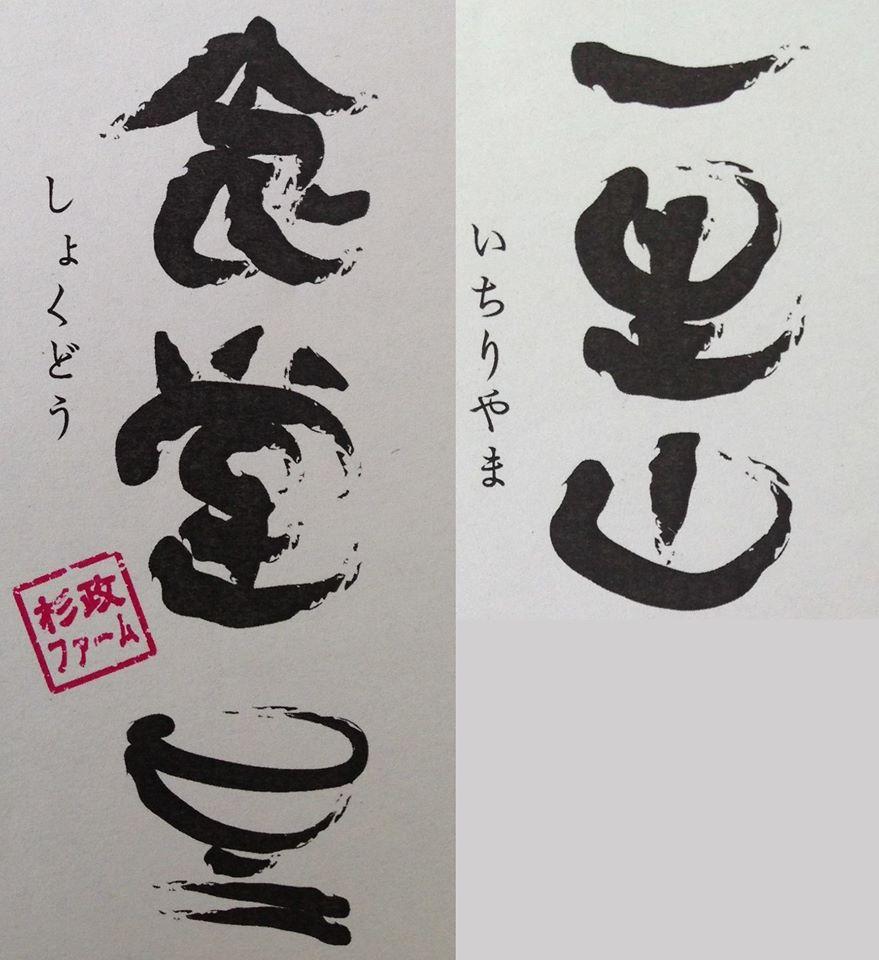 一里山
いちりやま
食堂
しょくどう
杉政
ファーム